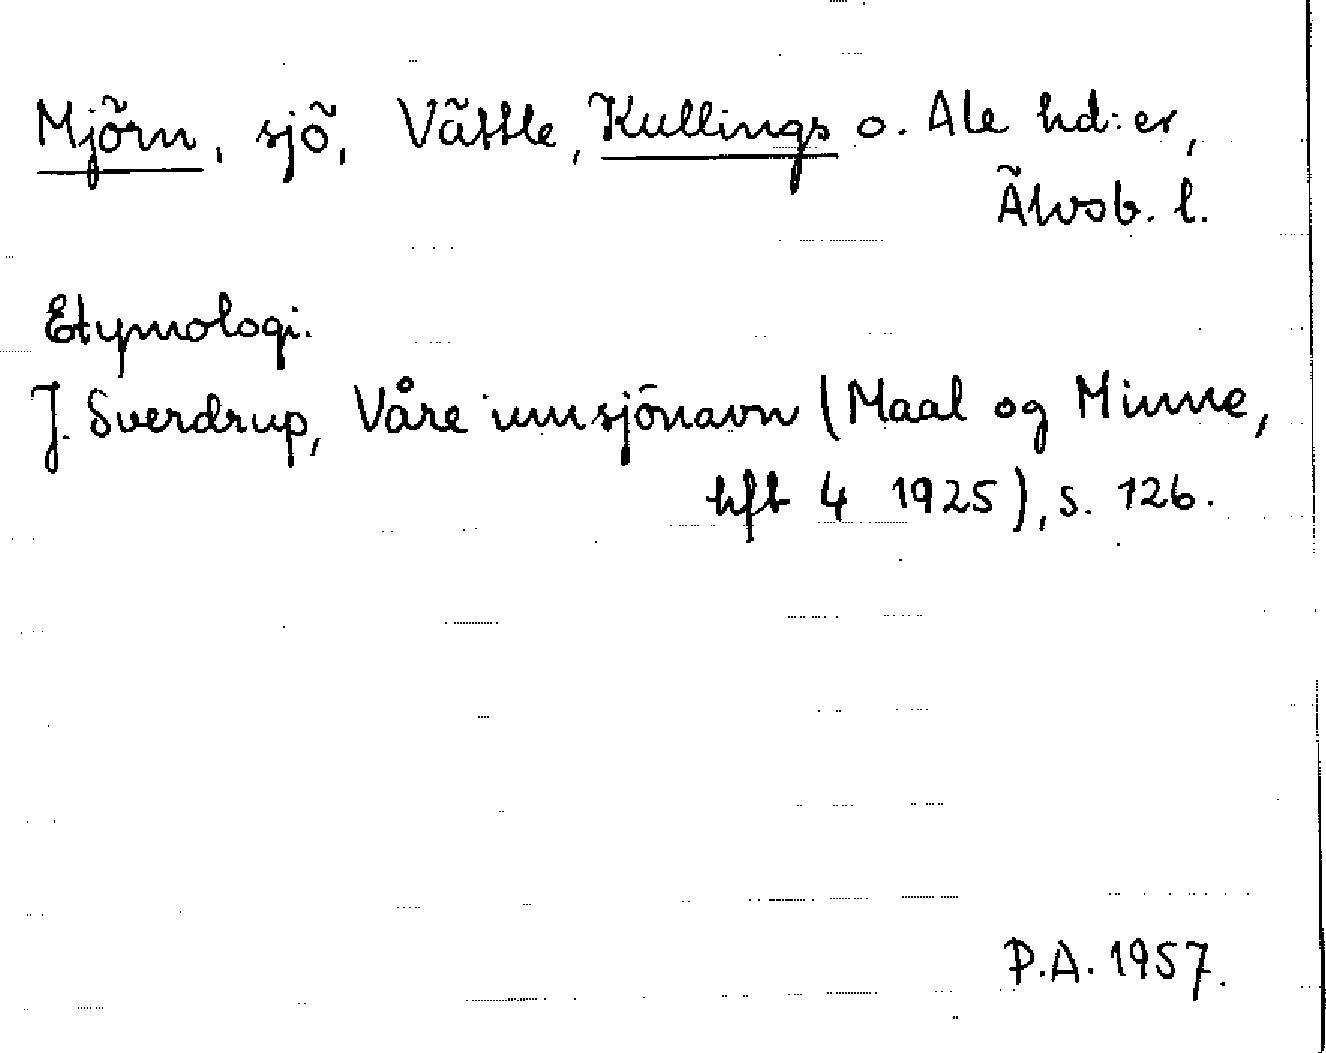 Mjörn, sjö, Vättle, Kullings o. Ale hd:er,
Älvsb. l.
Etymologi.
J. Sverdrup, Våre innsjönavn (Maal og Minne,
hft 4 1925), s. 126.
P.A. 1957.